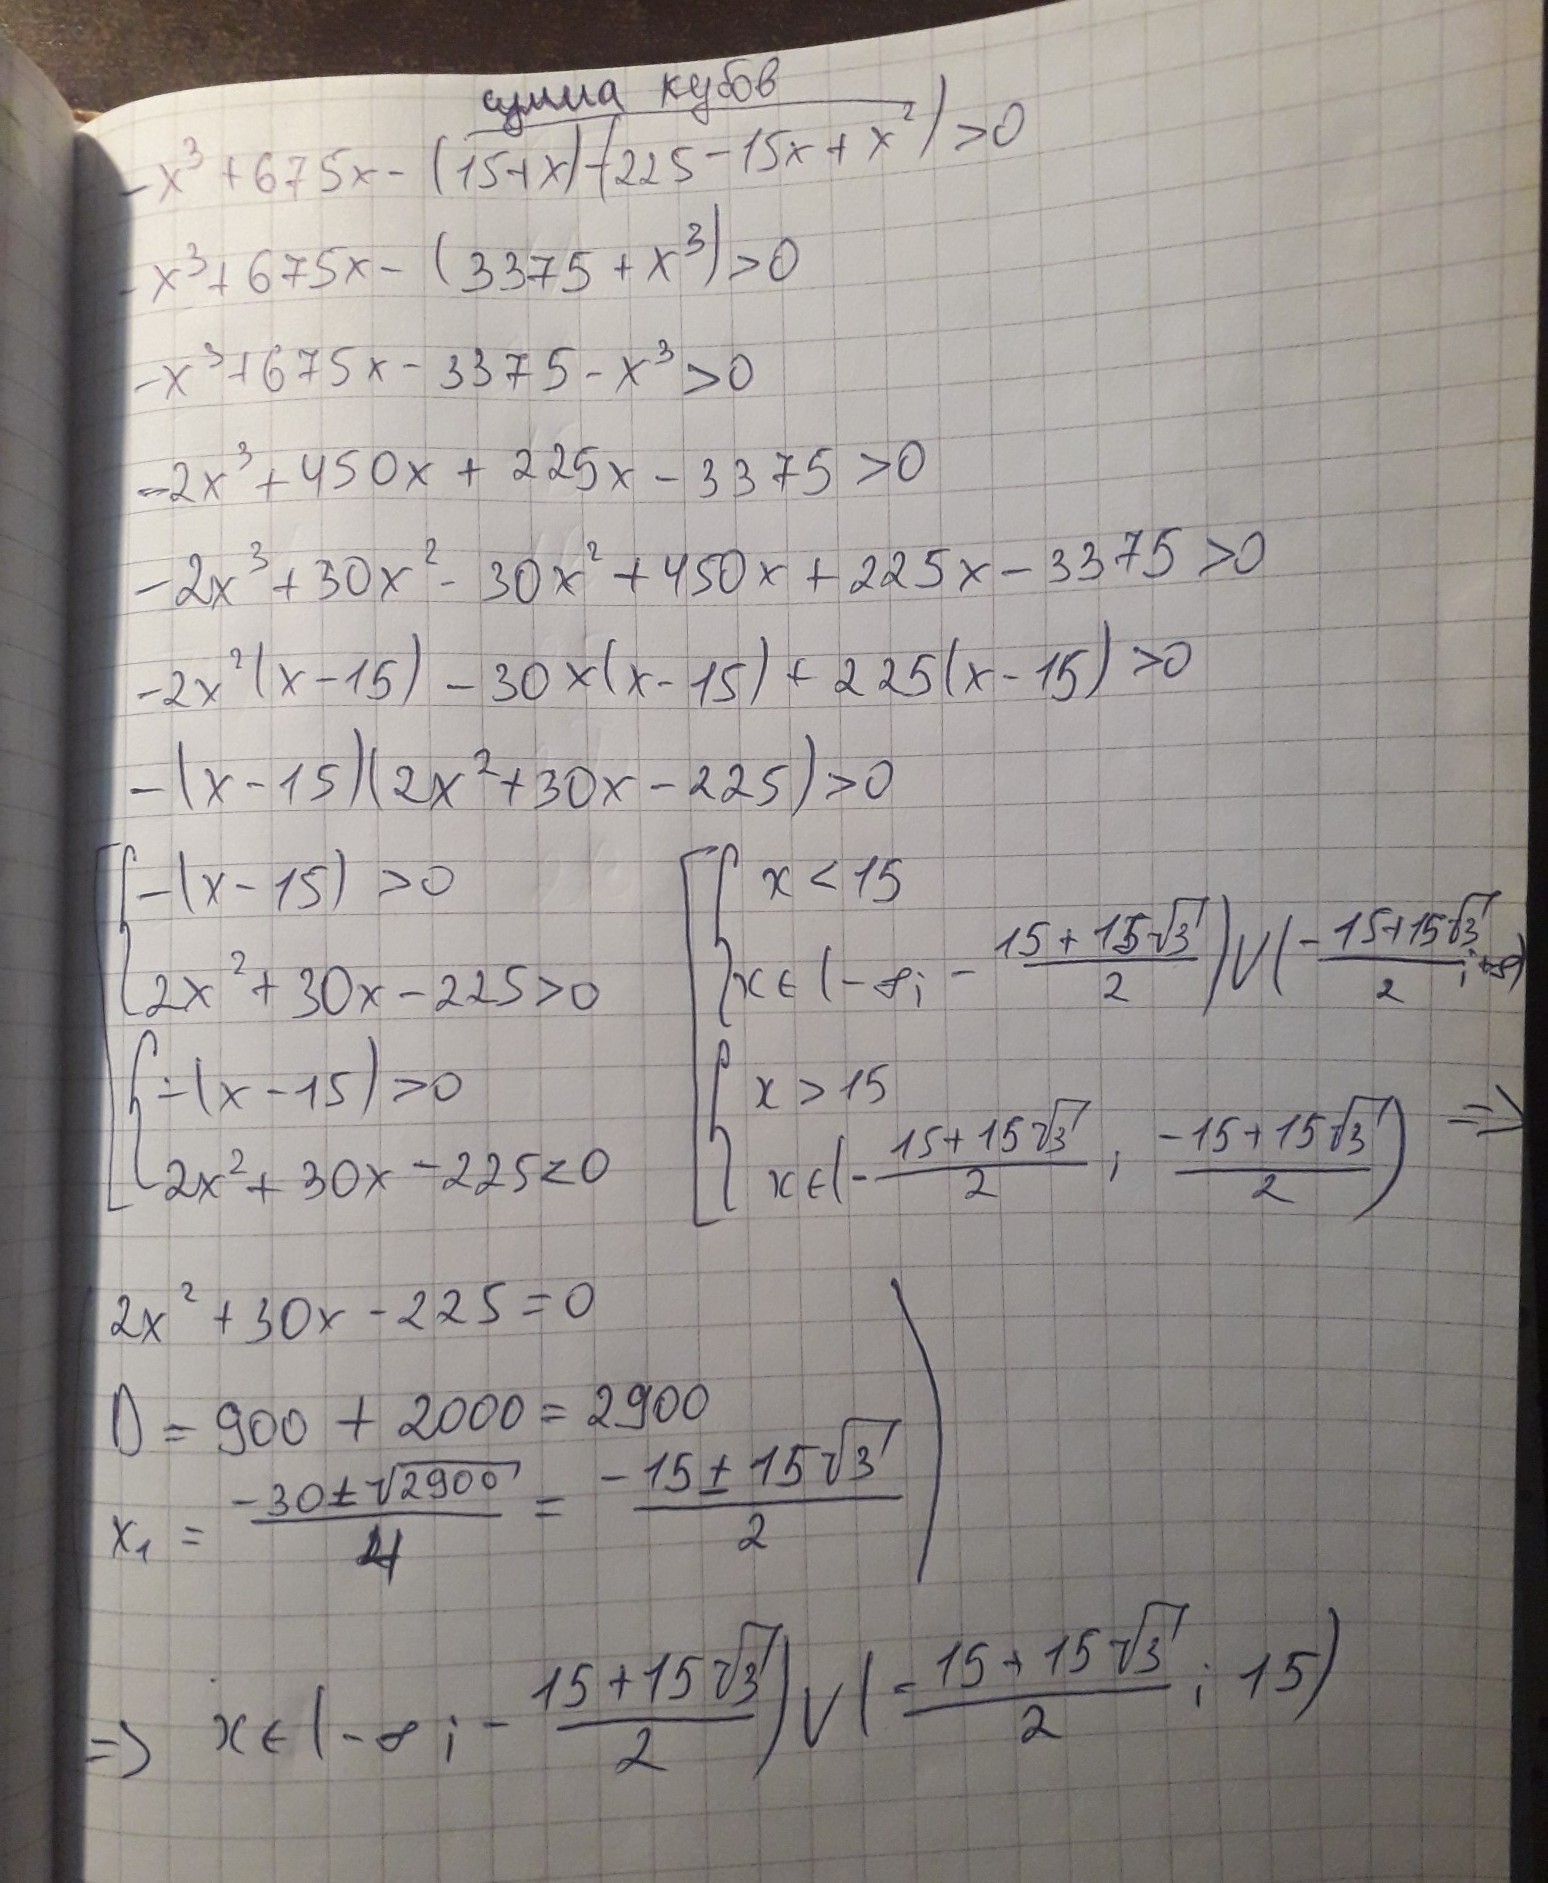 сумма кубов
-x³+675x-(15+x)(225-15x+x²)>0
-x³+675x-(3375+x³)>0
-x³+675x-3375-x³>0
-2x³+450x+225x-3375>0
-2x³+30x²-30x²+450x+225x-3375>0
-2x²(x-15)-30x(x-15)+225(x-15)>0
-(x-15)(2x²+30x-225)>0
[{-(x-15)>0 [{x<15
2x²+30x-225>0 x∈(-∞; -(15+15√3)/2)∪(-15+15√3)/2; +∞)
{-(x-15)>0 {x>15
2x²+30x-225<0 x∈(-(15+15√3)/2; (-15+15√3)/2) =>
2x²+30x-225=0
D=900+2000=2900
x₁=(-30±√2900)/4=(-15±15√3)/2
=> x∈(-∞; -(15+15√3)/2)∪((-15+15√3)/2; 15)